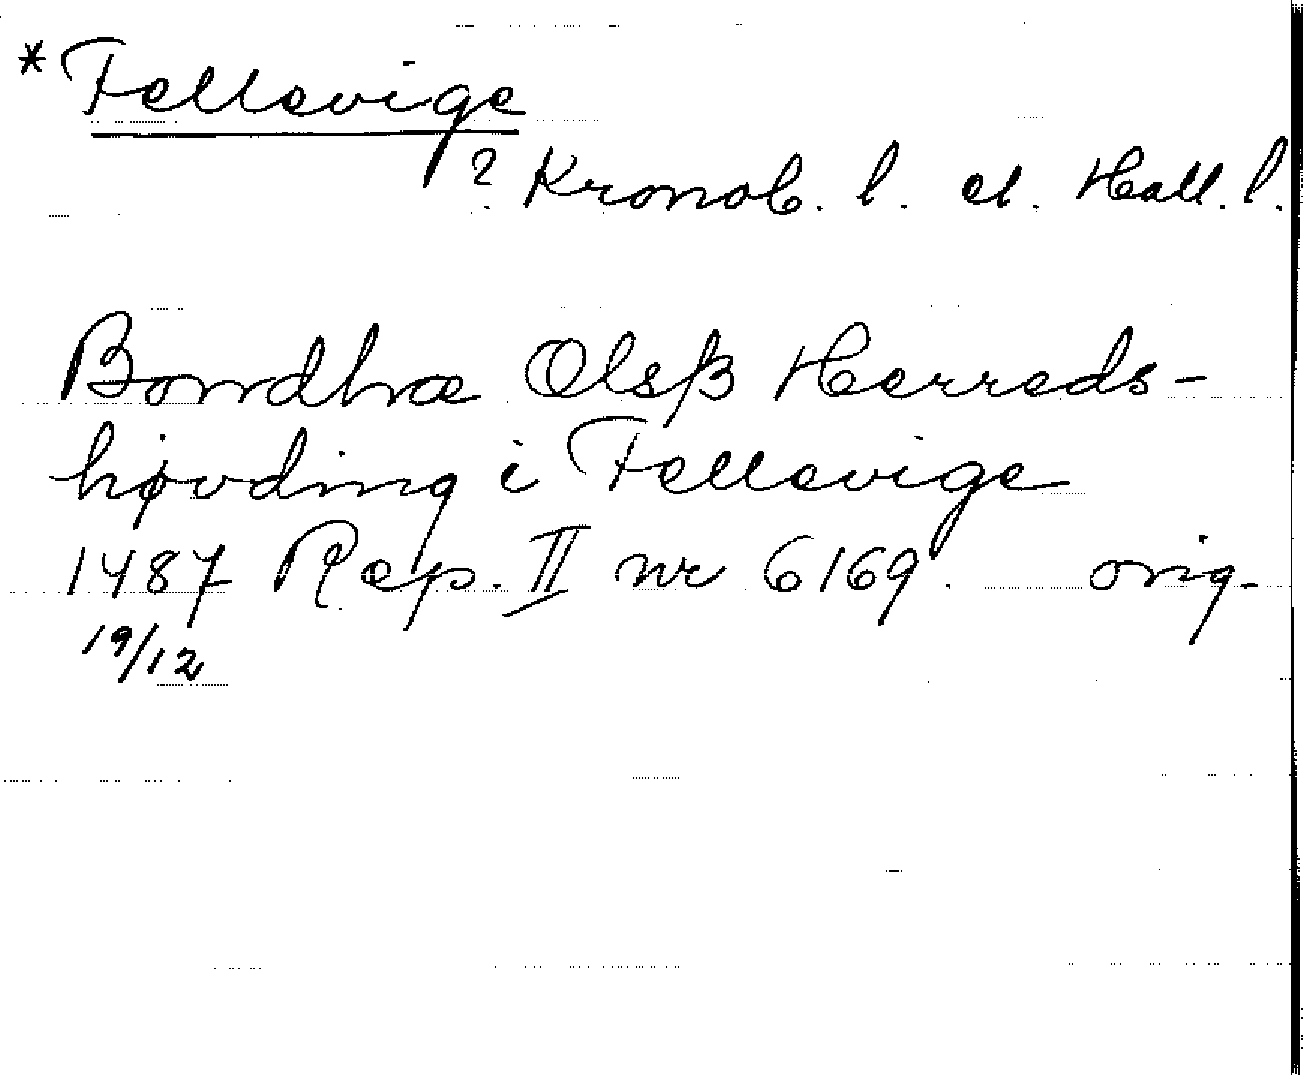 * Fellevige
? Kronob. l. el. Hall. l.
Bondhæ Olsß Herreds-
høvding i Fellevige
1487 Rep. II nr 6169. orig.
19/12